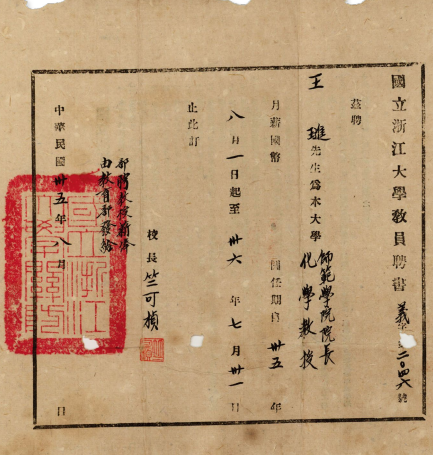 國立浙江大學敎員聘書 義字第二〇四六號
茲聘
王 璡先生爲本大學 師範學院院長 化學教授
月薪國幣 圓任期自卅五年
八月一日起至卅六年七月卅一日
止此訂
校長竺可楨
部聘教授薪俸
由教育部發給
中華民國卅五年八月 日